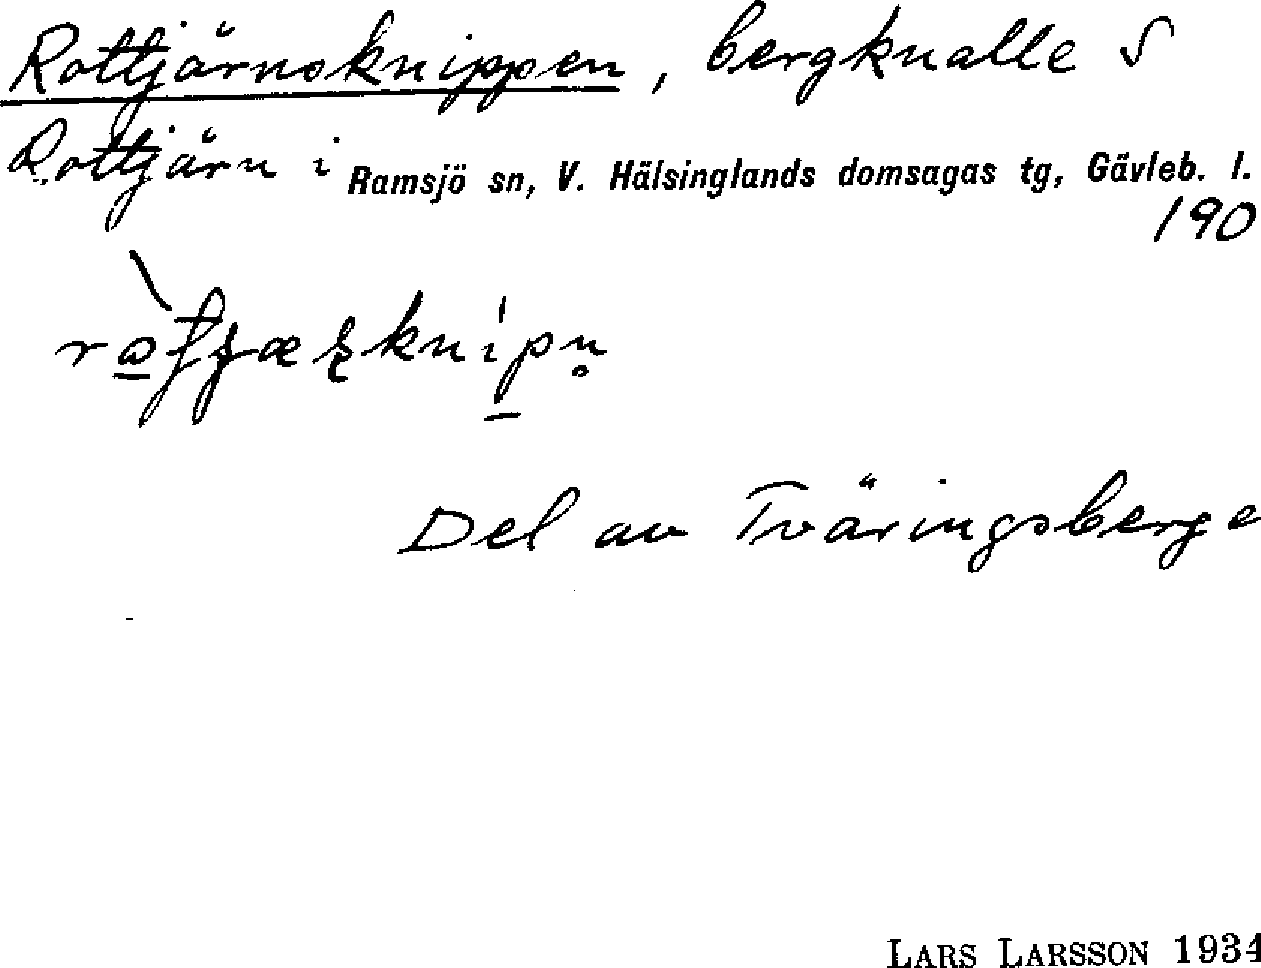 Rottjärnsknippen, bergknalle S
Rottjärn i Ramsjö sn, V. Hälsinglands domsagas tg, Gävleb. l.
190
Del av Tväringsberge
LARS LARSSON 1934